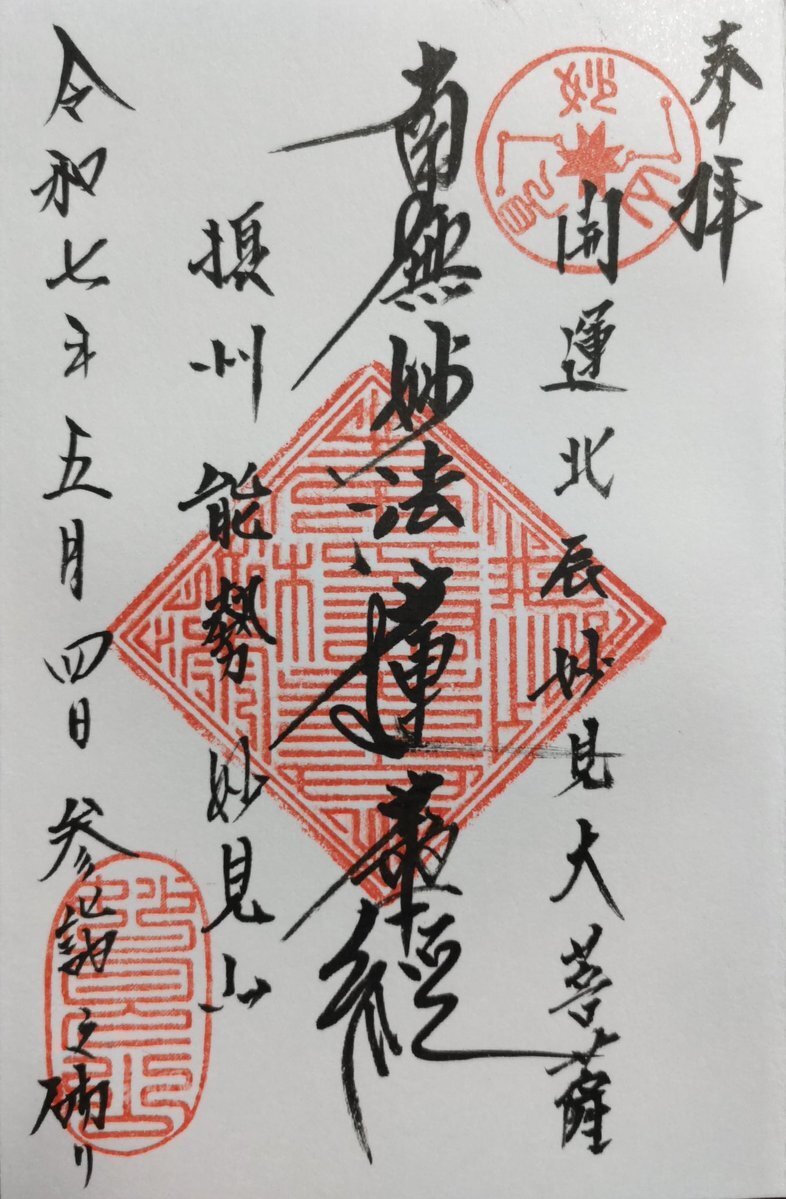 奉拝
開運北辰妙見大菩薩
南無妙法蓮華経
摂州能勢妙見山
令和七年五月四日参詣之砌リ